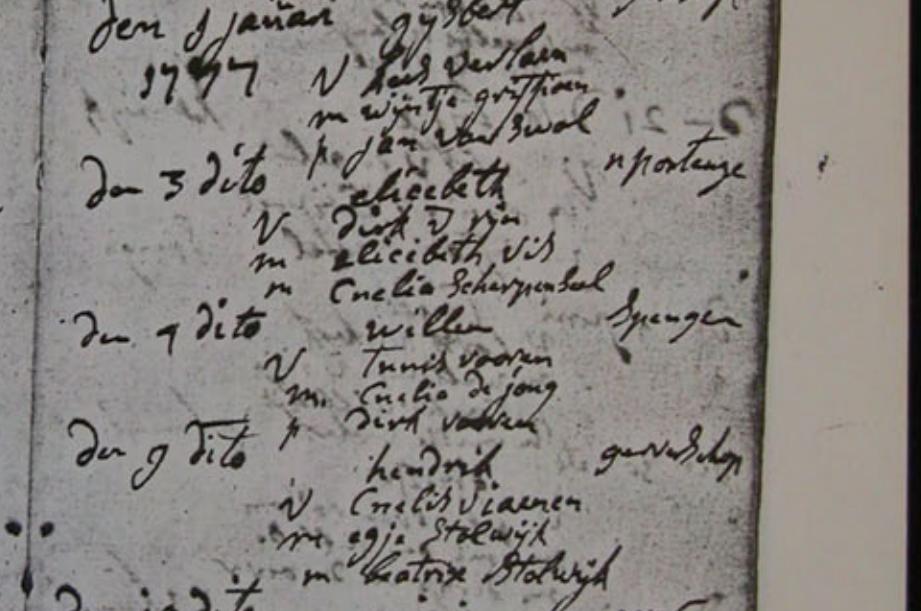 den 1 januari gysbert
1777 V kees verlaen
m wijntje griffioen
p jan van Swol
Den 3 dito elicebeth nportenge
V dirk v rijn
m elicibeth vis
m Cnelia Scherpenseel
den 9 dito willem Spengen
V Tunis vooren
m. Cnelia de jong
p dirk vooren
Den 9 dito hendrik gerverschop
V Cnelis viaenen
m egje Stolwijk
m beatrix Stolwijk
dito